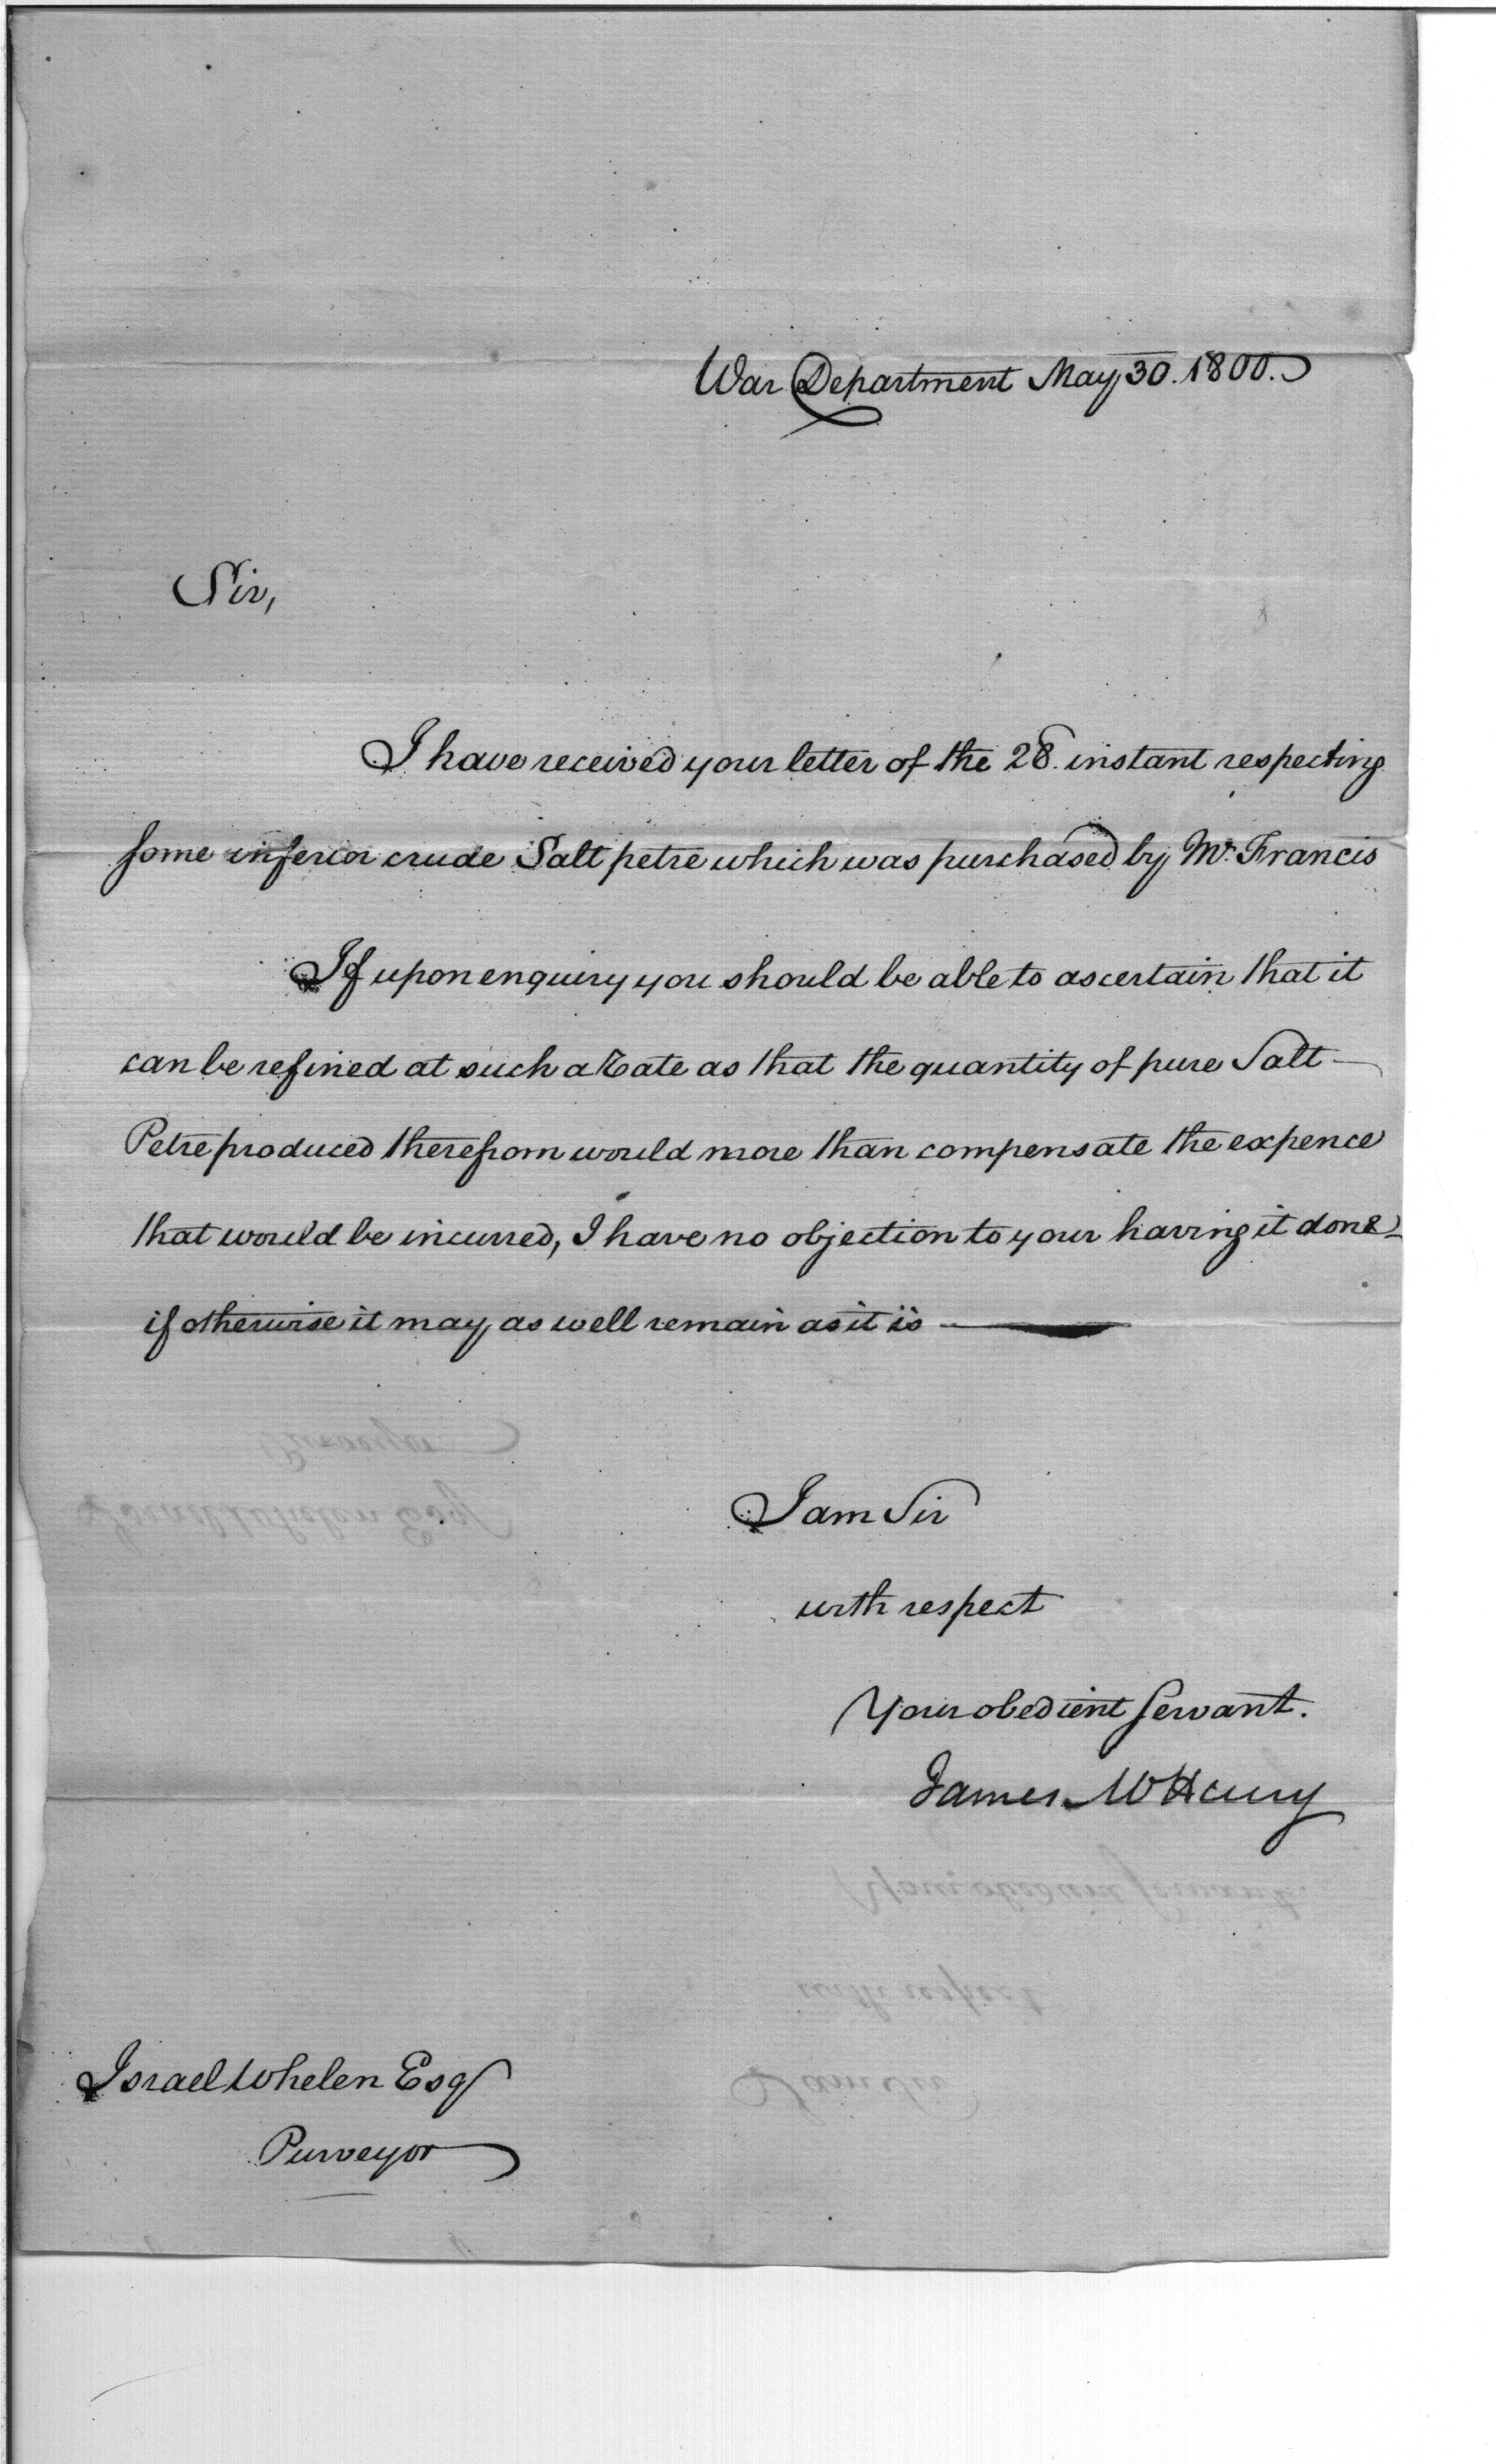 War Department May 30. 1800.
Sir,
I have received your letter of the 28. instant respecting
some inferior crude Salt petre which was purchased by Mr. Francis
If upon enquiry you should be able to ascertain that it
can be refined at such a rate as that the quantity of pure Salt-
Petre produced therefrom would more than compensate the expence
that would be incurred, I have no objection to your having it done-
if otherwise it may as well remain as it is -
I am Sir
with respect
Your obedient servant.
James McHenry
Israel Whelen Esq
Purveyor